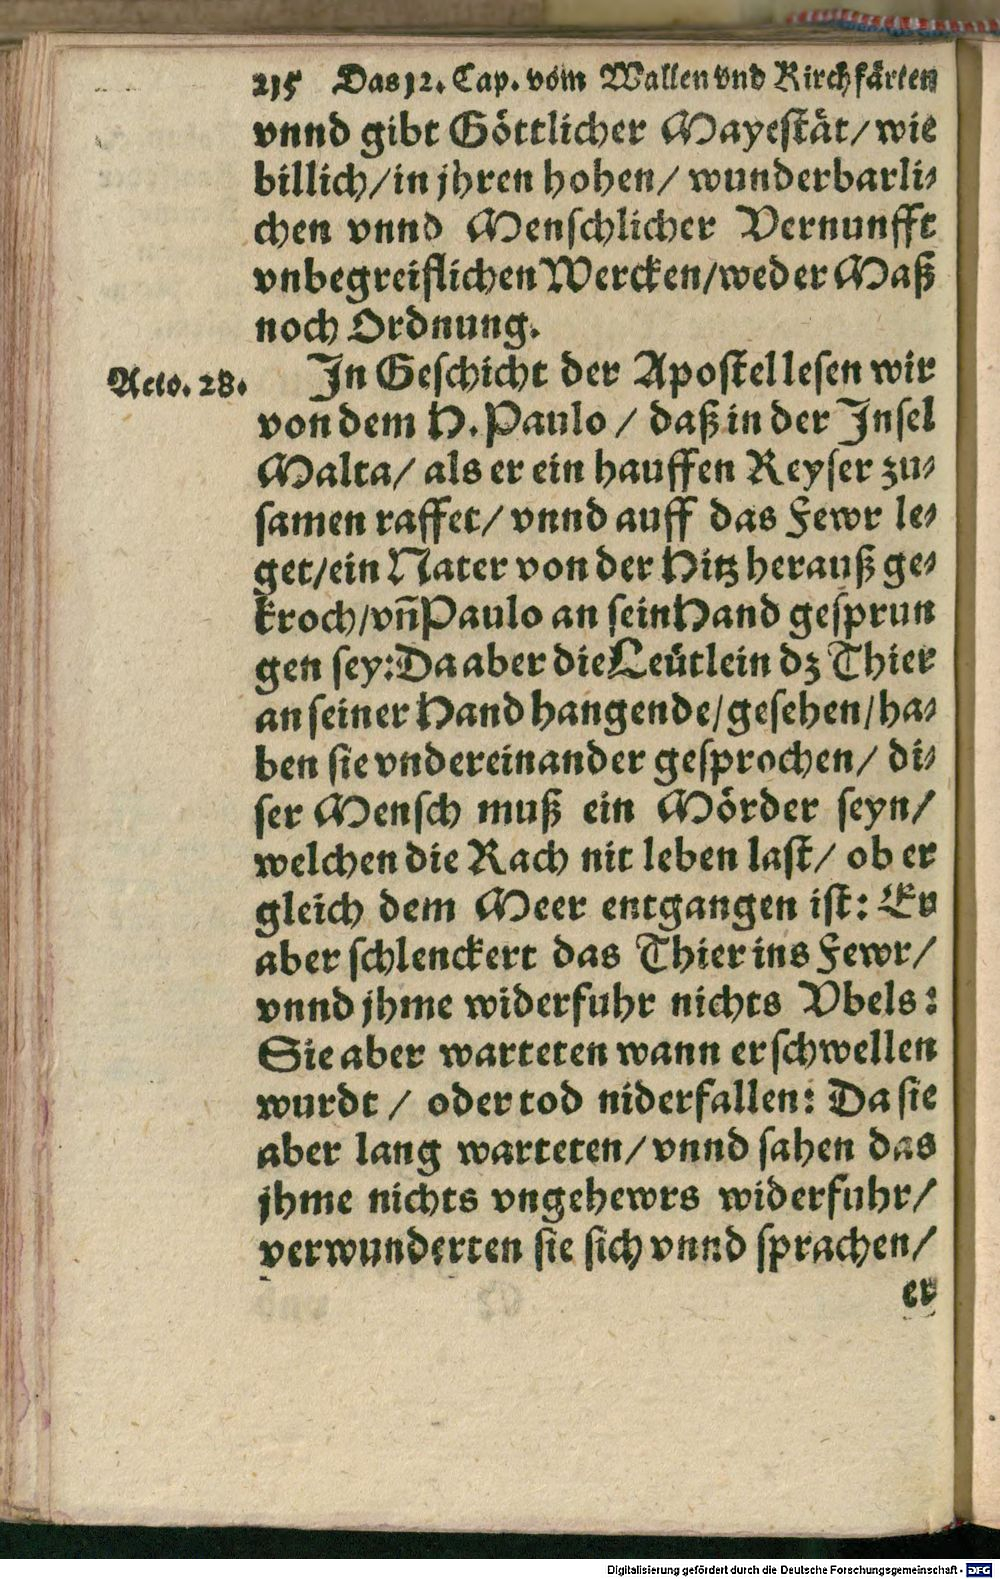 215 Das 12. Cap. vom Wallen vnd Kirchfärten
vnnd gibt Göttlicher Mayestät/ wie
billich/ in jhren hohen/ wunderbarli-
chen vnnd Menschlicher Vernunfft
vnbegreiflichen Wercken/ weder Maß
noch Ordnung.
Acto. 28.
In Geschicht der Apostel lesen wir
von dem H. Paulo / daß in der Insel
Malta/ als er ein hauffen Reyser zu-
samen raffet/ vnnd auff das Fewr le-
get/ ein Nater von der Hitz herauß ge-
kroch/ vñ Paulo an sein Hand gesprun
gen sey: Da aber die Leütlein dz Thier
an seiner Hand hangende/ gesehen/ ha-
ben sie vndereinander gesprochen/ di-
ser Mensch muß ein Mörder seyn/
welchen die Rach nit leben last/ ob er
gleich dem Meer entgangen ist: Er
aber schlenckert das Thier ins Fewr/
vnnd jhme widerfuhr nichts Vbels:
Sie aber warteten wann er schwellen
wurdt / oder tod niderfallen: Da sie
aber lang warteten/ vnnd sahen das
jhme nichts vngehewrs widerfuhr/
verwunderten sie sich vnnd sprachen/
er
Digitalisierung gefördert durch die Deutsche Forschungsgemeinschaft - DFG